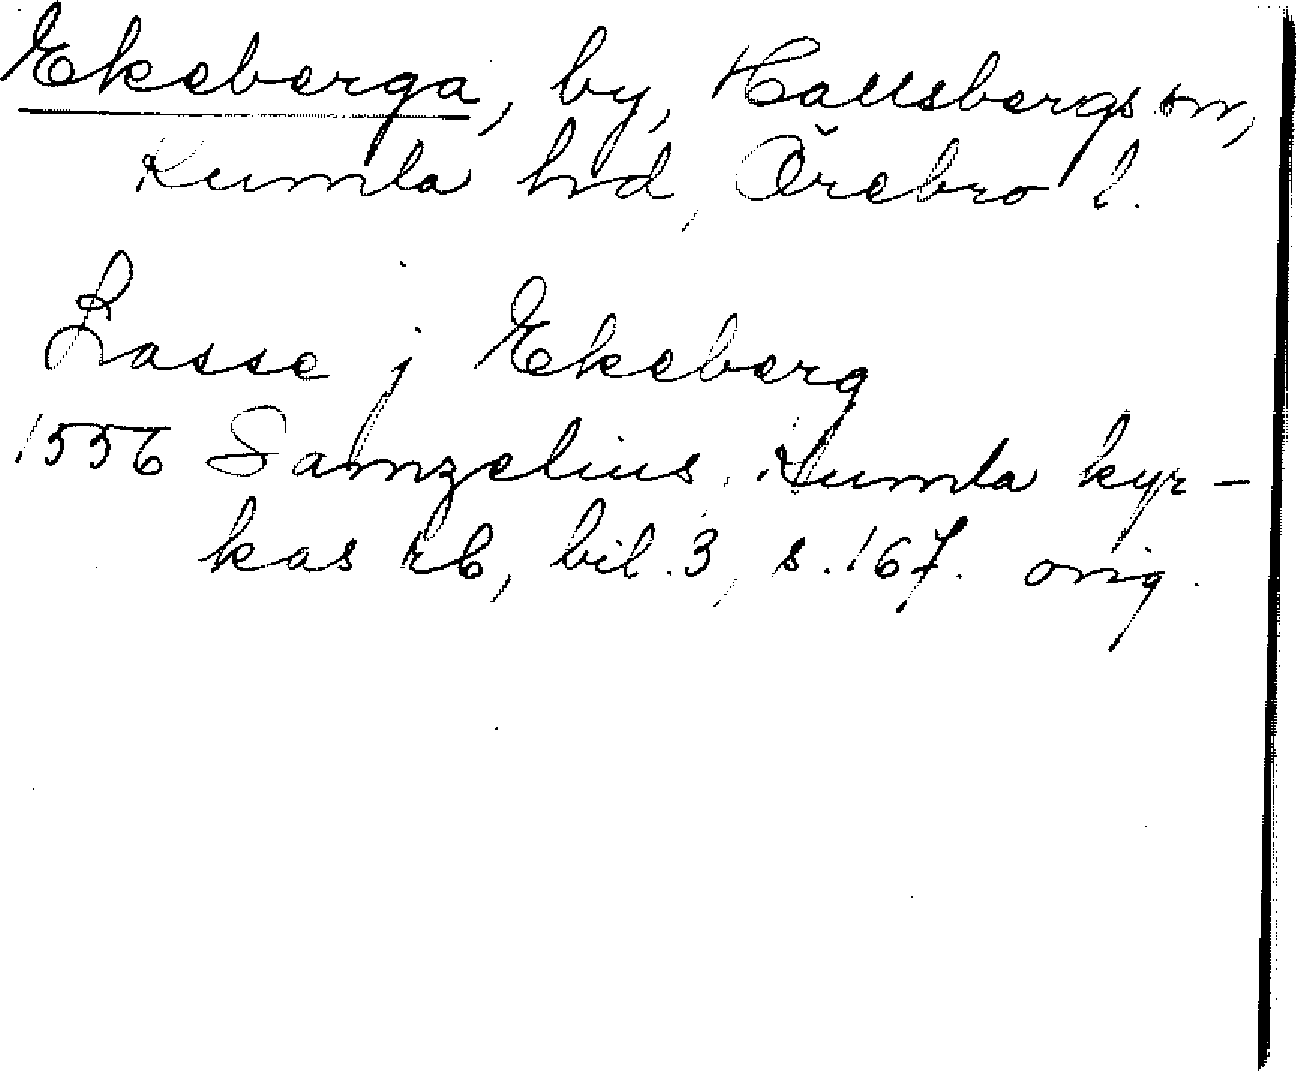 Ekeberga, by, Hallsbergs sn,
Kumla hd, Örebro l.
Lasse j Ekeberg
1556 Samzelius, Kumla kyr-
kas rb, bil. 3, s. 167. orig.